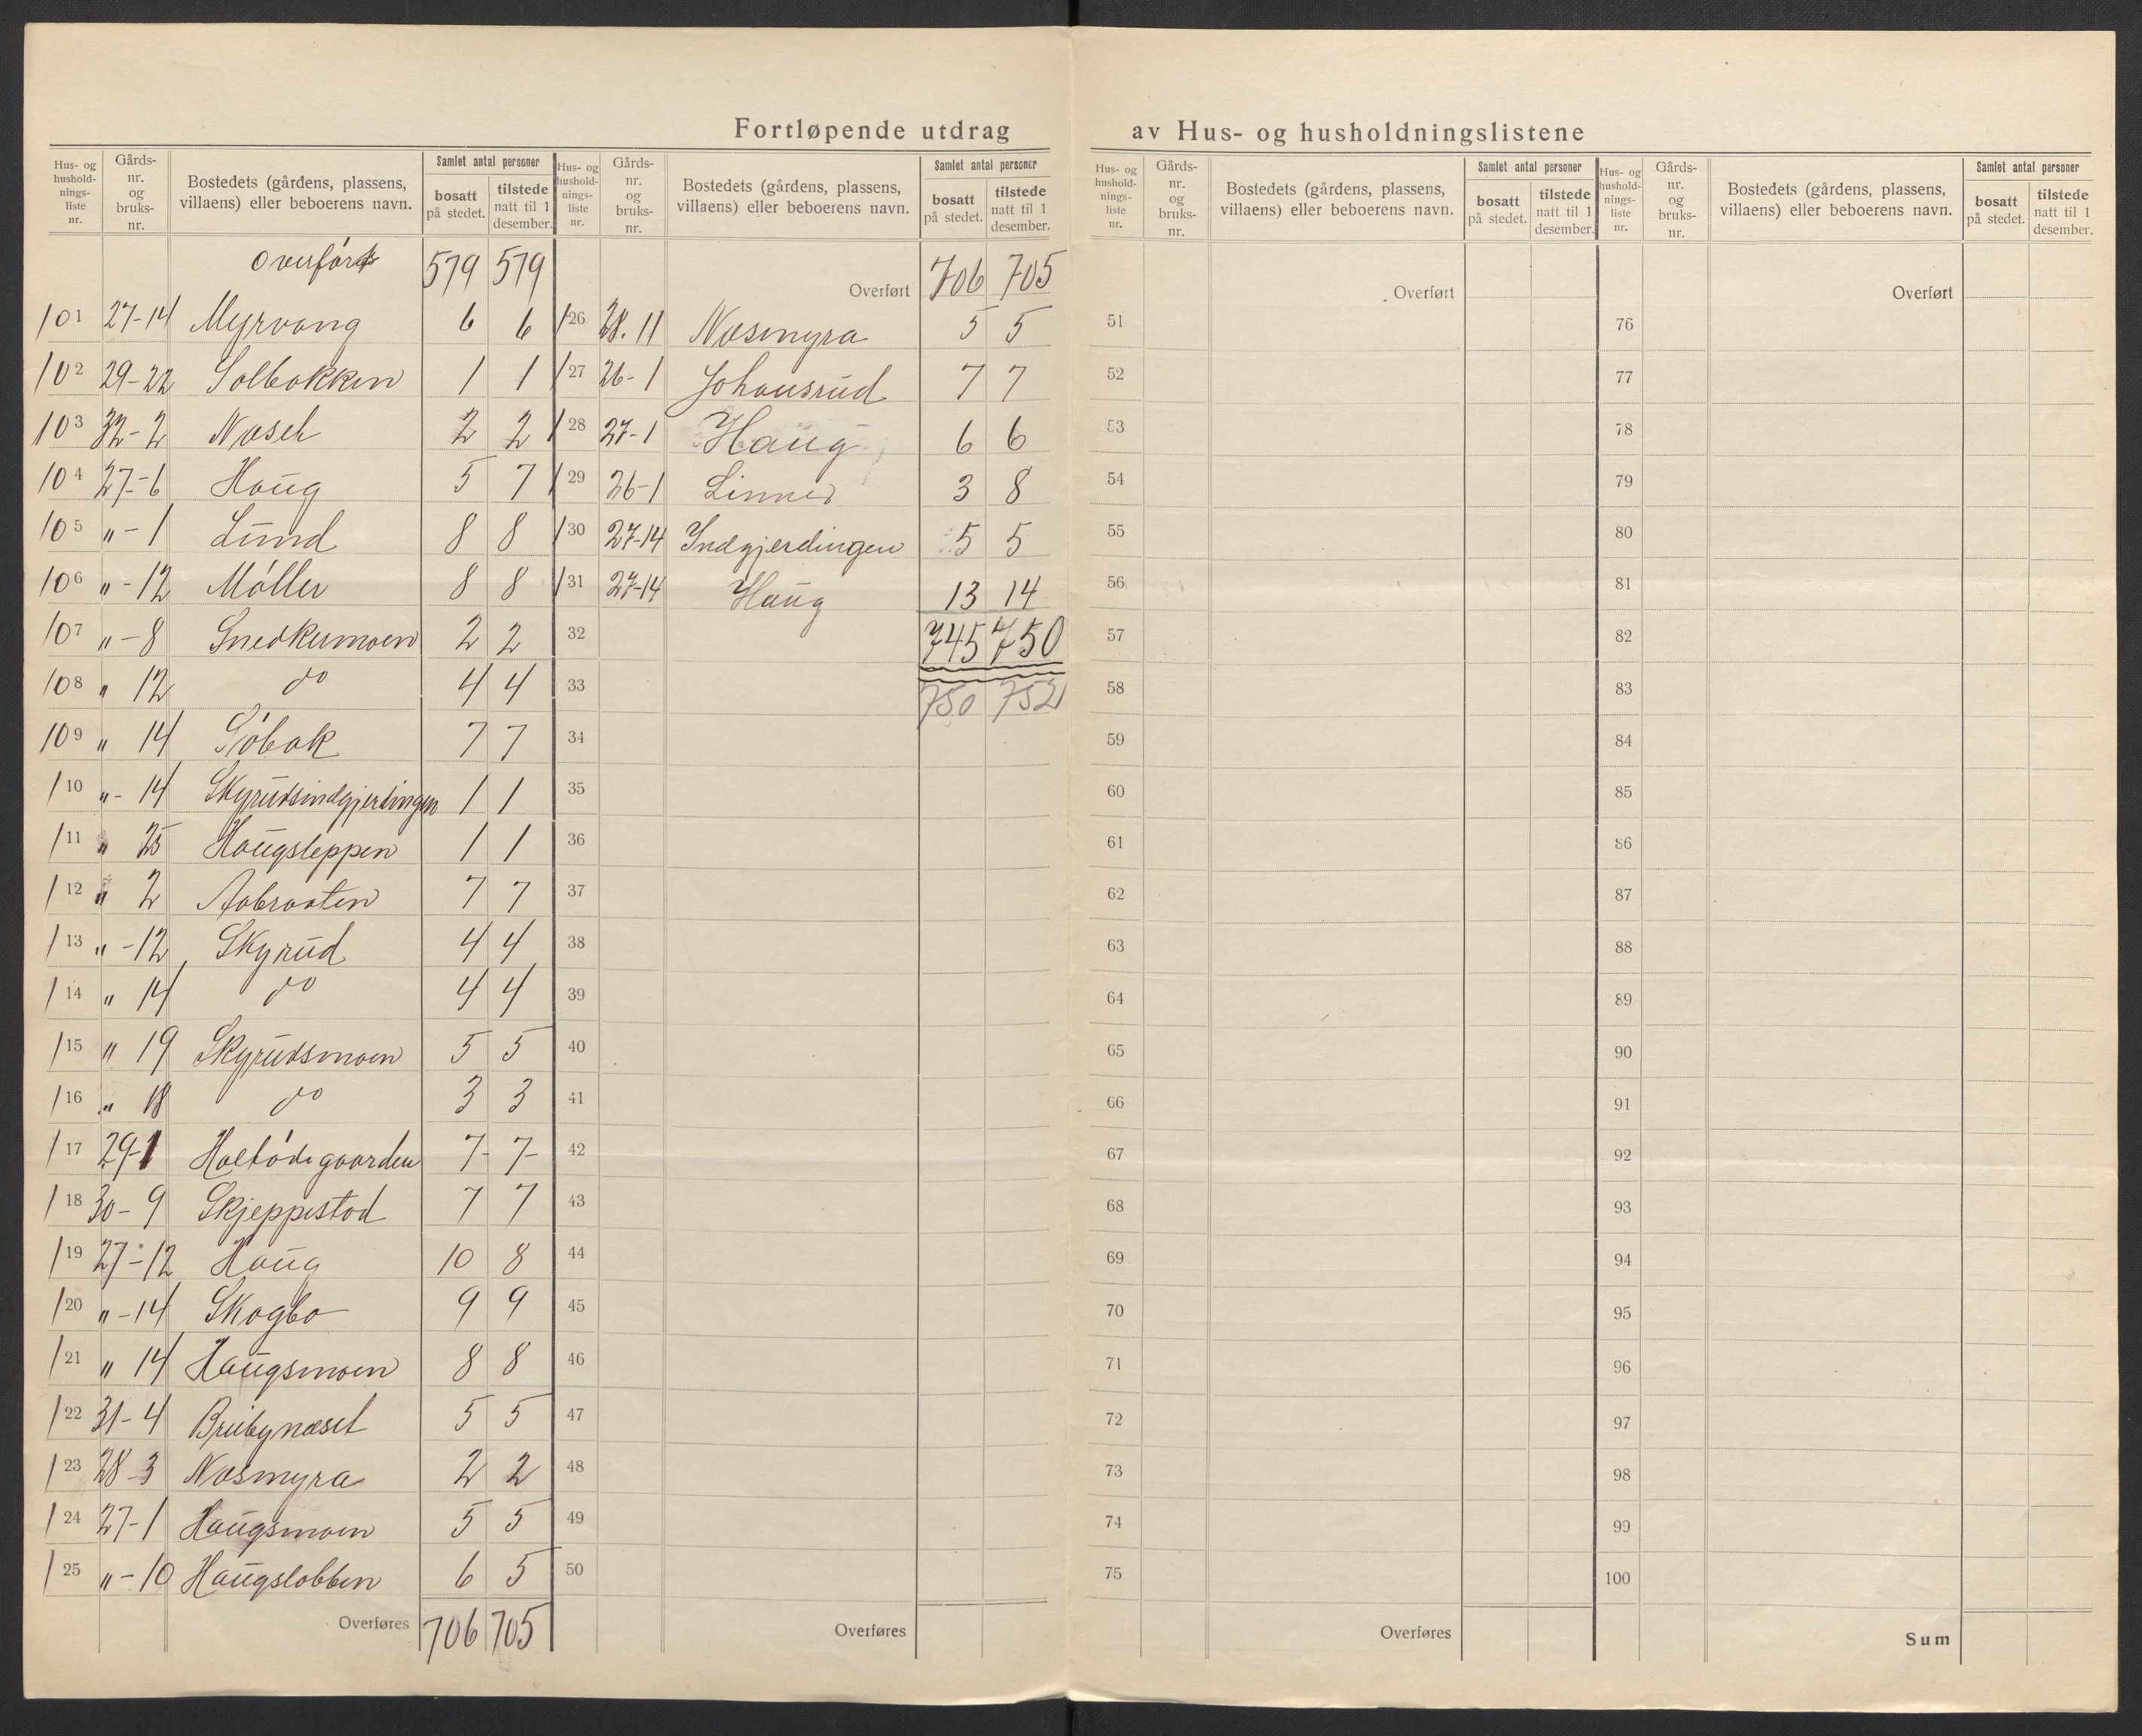 Fortløpende utdrag av Hus- og husholdningslistene
Hus- og husholdnings-liste nr. Gårds-nr. og bruks-nr. Bostedets (gårdens, plassens, villaens) eller beboerens navn. Samlet antal personer bosatt på stedet. tilstede natt til 1 desember.
Overført 579 579
101 27-14 Myrvang 6 6
102 29-22 Solbakken 1 1
103 32-2 Næset 2 2
104 27-6 Haug 5 7
105 "-1 Lund 8 8
106 "-12 Møller 8 8
107 "-8 Snedkermoen 2 2
108 " 12 do 4 4
109 " 14 Søbak 7 7
110 "- 14 Skyrudsindgjerdingen 1 1
111 " 25 Haugsleppen 1 1
112 " 2 Aabraaten 7 7
113 "-12 Skyrud 4 4
114 " 14 do 4 4
115 " 19 Skyrudsmoen 5 5
116 " 18 do 3 3
117 29-1 7- 7-
118 30-9 Skjeppestad 7 7
119 27-12 Haug 10 8
120 "-14 Skogbo 9 9
121 " 14 Haugsmoen 8 8
122 31-4 Brubynæset 5 5
123 28-3 Næsmyra 2 2
124 27-1 Haugsmoen 5 5
125 "-10 Haugslobben 6 5
Overføres 706 705
Hus- og husholdnings-liste nr. Gårds-nr. og bruks-nr. Bostedets (gårdens, plassens, villaens) eller beboerens navn. Samlet antal personer bosatt på stedet. tilstede natt til 1 desember.
Overført 706 705
126 28.11 Næsmyra 5 5
127 26-1 Johansrud 7 7
128 27-1 Haug 6 6
129 26-1 3 8
130 27-14 Indgjerdingen 5 5
131 27-14 Haug 13 14
32 745 750
33 750 752
34
35
36
37
38
39
40
41
42
43
44
45
46
47
48
49
50
Overføres
Hus- og husholdnings-liste nr. Gårds-nr. og bruks-nr. Bostedets (gårdens, plassens, villaens) eller beboerens navn. Samlet antal personer bosatt på stedet. tilstede natt til 1 desember.
Overført
51
52
53
54
55
56
57
58
59
60
61
62
63
64
65
66
67
68
69
70
71
72
73
74
75
Overføres
Hus- og husholdnings-liste nr. Gårds-nr. og bruks-nr. Bostedets (gårdens, plassens, villaens) eller beboerens navn. Samlet antal personer bosatt på stedet. tilstede natt til 1 desember.
Overført
76
77
78
79
80
81
82
83
84
85
86
87
88
89
90
91
92
93
94
95
96
97
98
99
100
Sum